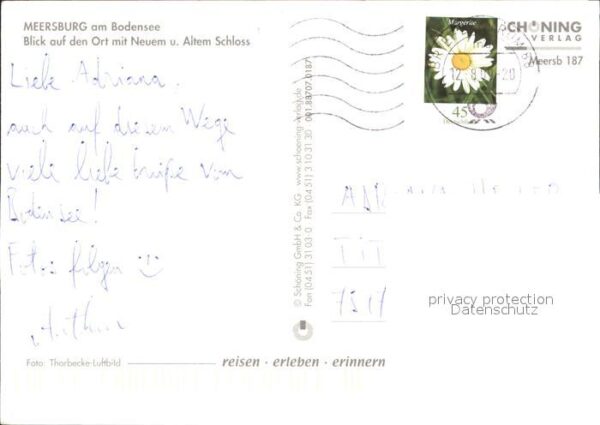 MEERSBURG am Bodensee
Blick auf den Ort mit Neuem u. Altem Schloss
Liebe Adriana,
auch auf diesem Wege
viele liebe Grüße vom
Bodensee!
Fotos folgen :)
Foto: Thorbecke-Luftbild
reisen · erleben · erinnern
© Schöning GmbH & Co. KG www.schoening-verlag.de 001.88707.0187
Fon (04 51) 3 10 3-0 Fax (04 51) 3 10 31 30
Margerite
45
SCHÖNING
VERLAG
Meersb 187
ADRIANA
TIT
privacy protection
Datenschutz